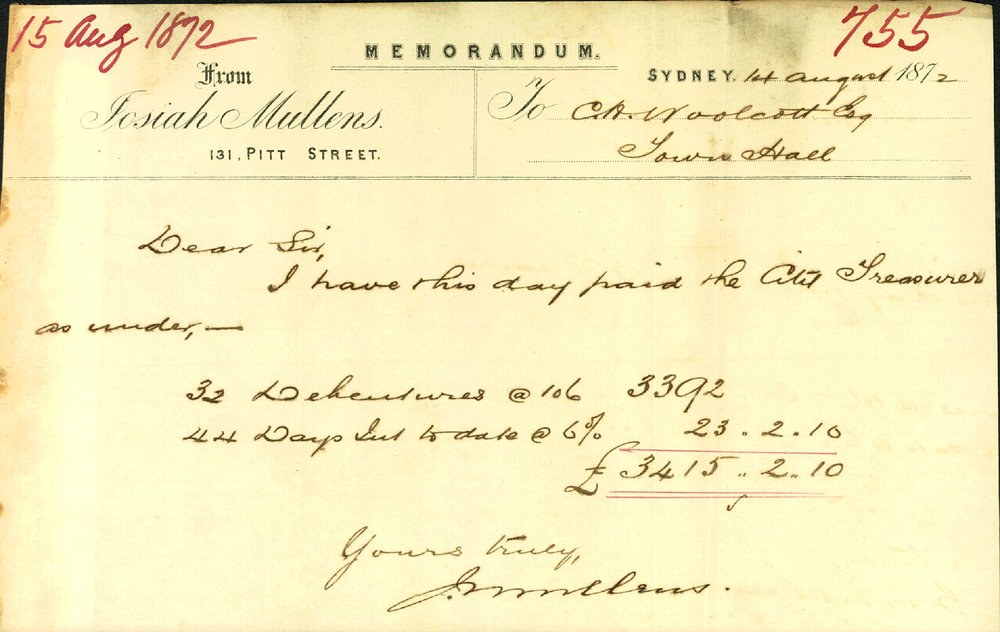 15 Aug 1872
755
MEMORANDUM.
From
Josiah Mullens.
131, PITT STREET.
SYDNEY. 14 August 1872
To C.H. Woolcott Esq
Town Hall
Dear Sir,
I have this day paid the City Treasurer
as under,—
32 Debentures @ 106 3392
44 Days Int to date @ 6% 23.. 2.. 10
£ 3415.. 2.. 10
Yours truly,
J Mullens.